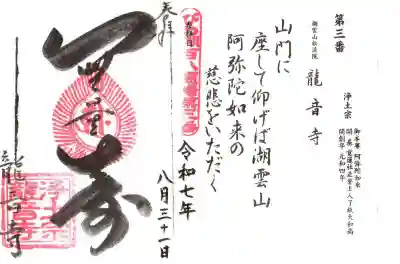 第三番
湖雲山松濤院
龍音寺
浄土宗
御本尊 阿弥陀如来
開創年 元和四年
山門に
座して仰げば湖雲山
阿弥陀如来の
慈悲をいただく
令和七年
八月三十一日
奉拝
無量壽
龍音寺
浄土宗
龍音寺